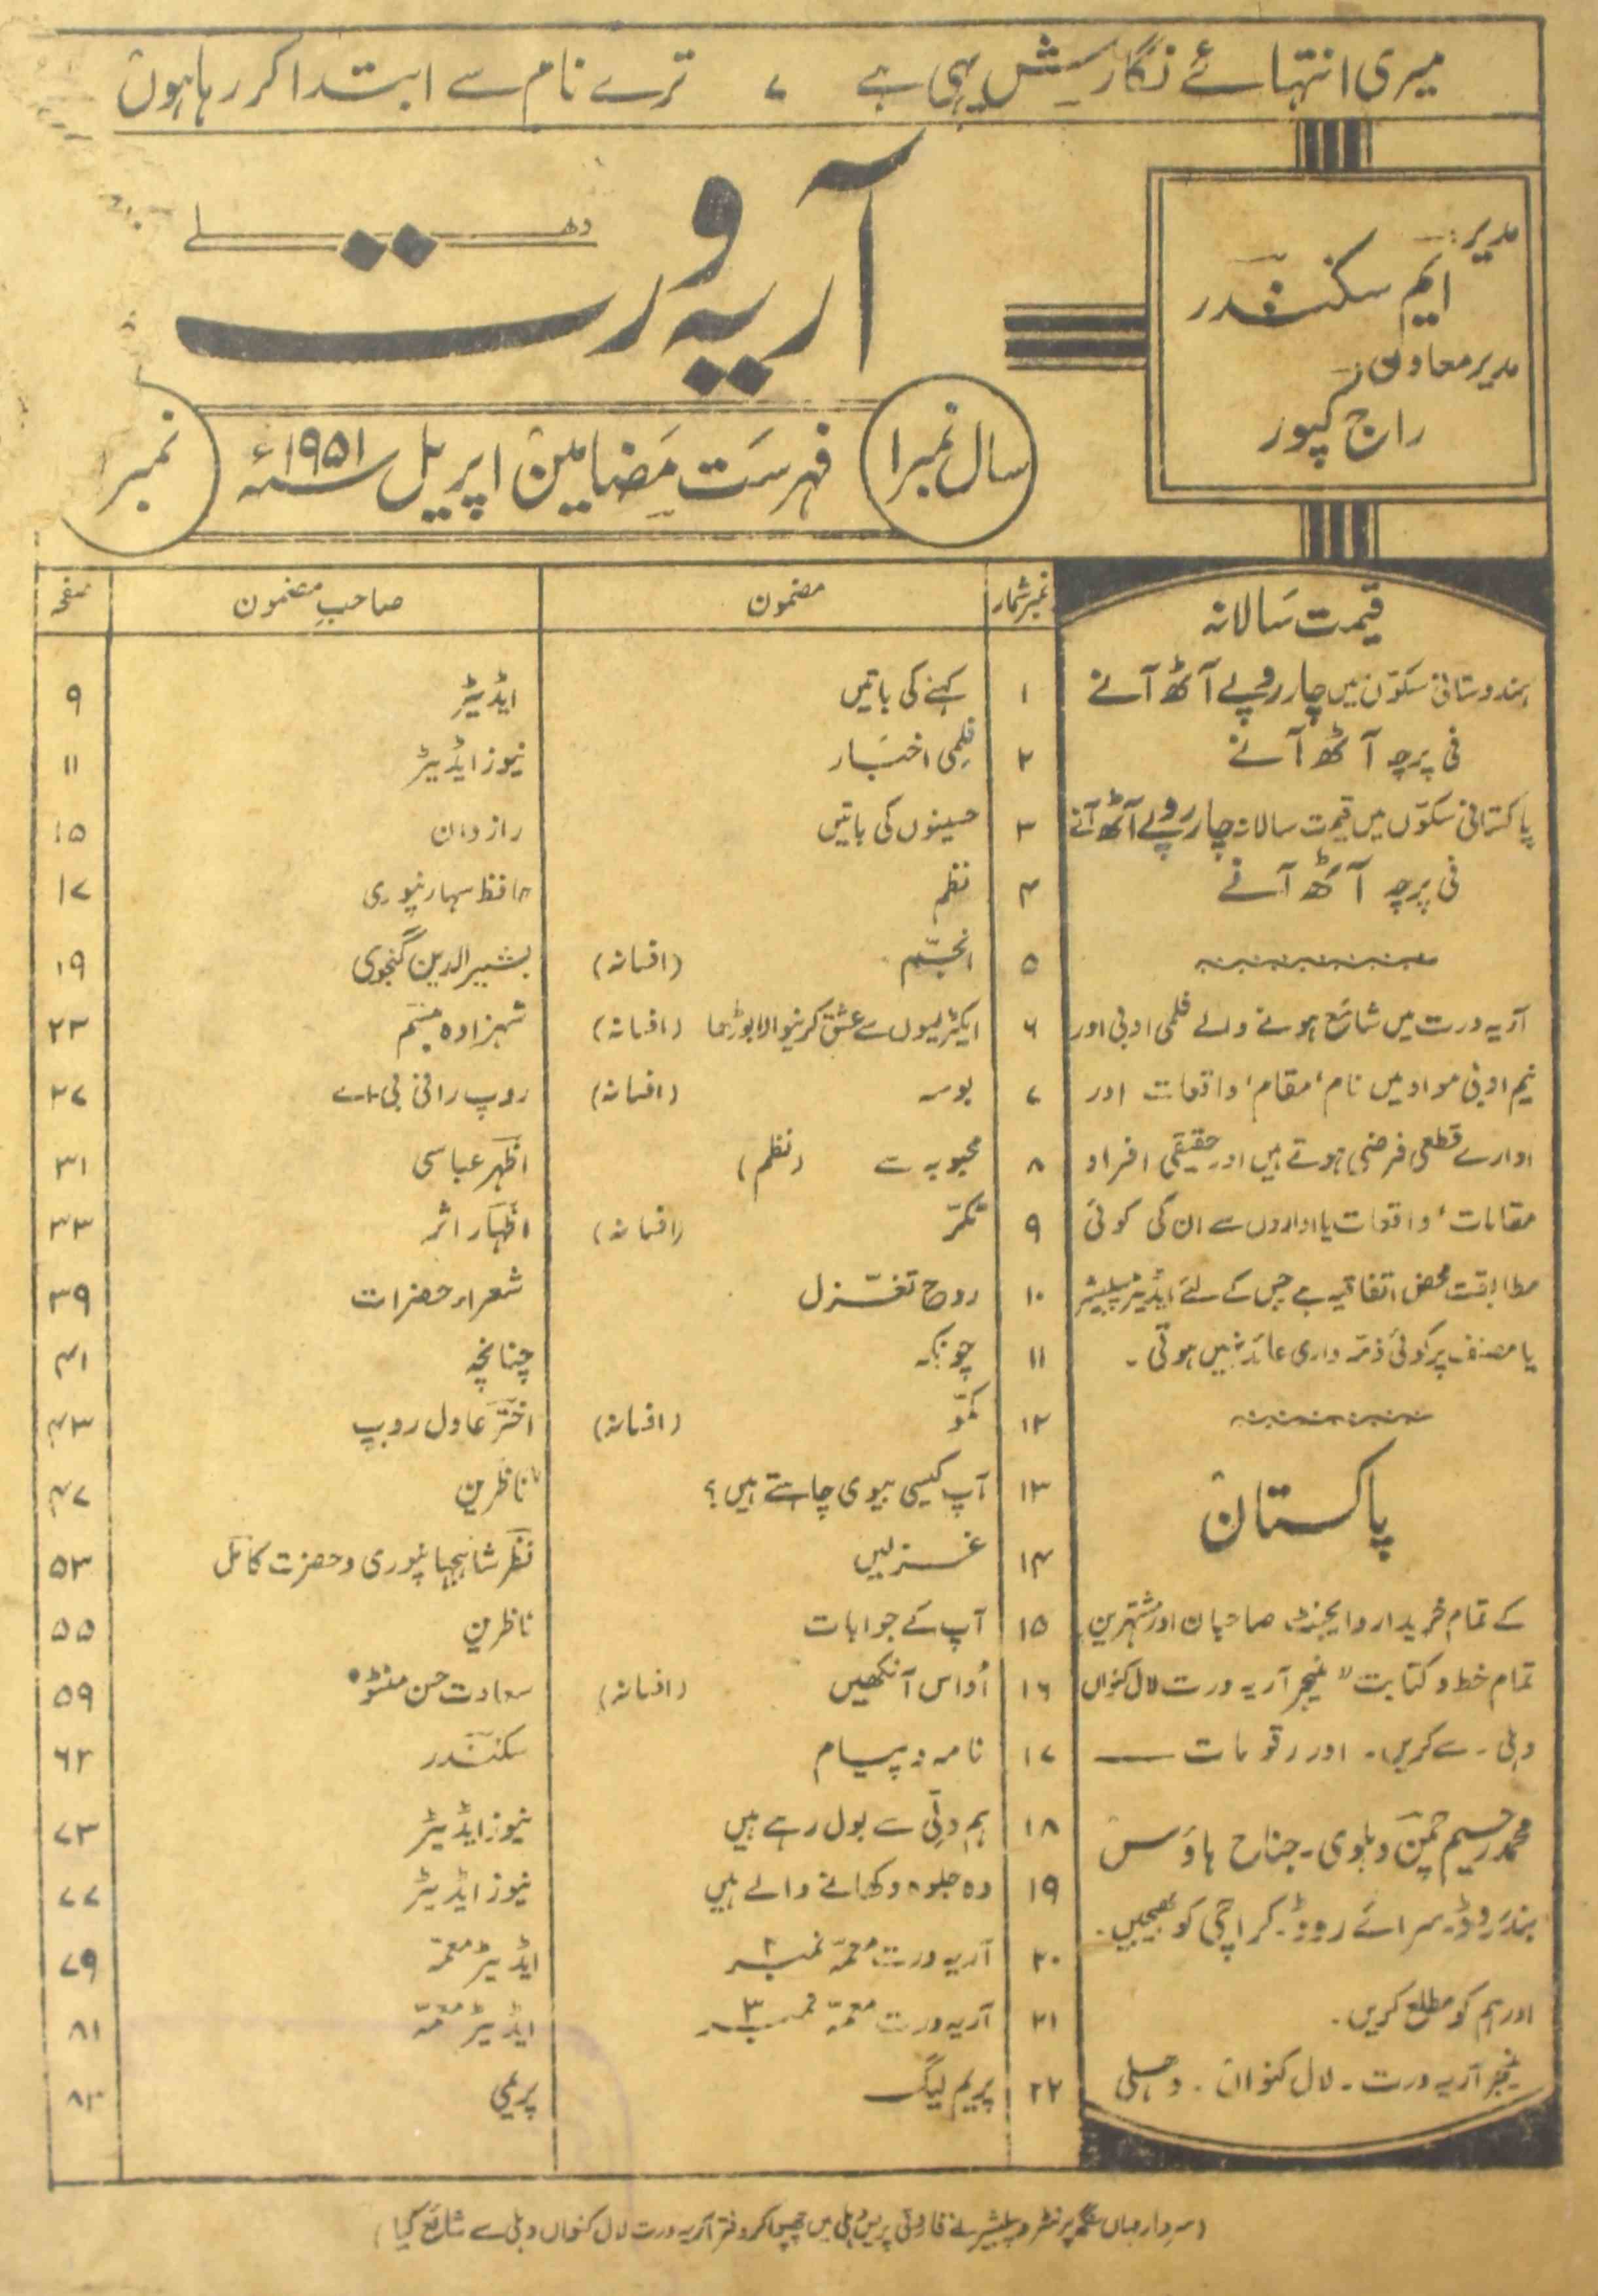 میری انتہائے نگارش یہی ہے ، ترے نام سے ابتدا کر رہا ہوں
آریہ ورت دھلی
مدیر:
ایم سکندر
مدیر معاون
راج کپور
سال نمبر ۱
فہرست مضامین اپریل سنہ ۱۹۵۱ء
نمبر
قیمت سالانہ
ہندوستانی سکوں میں چار روپے آٹھ آنے
فی پرچہ آٹھ آنے
پاکستانی سکوّں میں قیمت سالانہ چار روپے آٹھ آنے
فی پرچہ آٹھ آنے
آریہ ورت میں شائع ہونے والے فلمی ادبی اور
نیم ادبی مواد میں نام، مقام، واقعات اور
ادارے قطعی فرضی ہوتے ہیں اور حقیقی افراد
مقامات، واقعات یا اداروں سے ان کی کوئی
مطابقت محض اتفاقیہ ہے جس کے لئے ایڈیٹر پبلیشر
یا مصنف پر کوئی ذمّہ داری عائد نہیں ہوتی ۔
پاکستان
کے تمام خریدار و ایجنٹ صاحبان اور مشتہرین
تمام خط و کتابت "منیجر آریہ ورت لال کنواں
دہلی ۔ سے کریں ۔ اور رقومات ——
محمد رحیم چمن دہلوی ۔ جناح ہاؤس
بندر روڈ ۔ سرائے روڈ ۔ کراچی کو بھیجیں ۔
اور ہم کو مطلع کریں ۔
منیجر آریہ ورت ۔ لال کنواں ۔ دہلی
نمبر شمار مضمون صاحبِ مضمون صفحہ
۱ کہنے کی باتیں ایڈیٹر ۹
۲ فلمی اخبار نیوز ایڈیٹر ۱۱
۳ حسینوں کی باتیں رازدان ۱۵
۴ نظم حافظ سہارنپوری ۱۷
۵ انجم (افسانہ) بشیر الدین گنجوی ۱۹
۶ ایکٹریسوں سے عشق کرنیوالا بوڑھا (افسانہ) شہزادہ تبسّم ۲۳
۷ بوسہ (افسانہ) روپ رانی بی۔اے ۲۷
۸ محبوبہ سے (نظم) اظہر عباسی ۳۱
۹ ٹکّر (افسانہ) اظہار اثر ۳۳
۱۰ روح تغزّل شعراء حضرات ۳۹
۱۱ چونکہ چنانچہ ۴۱
۱۲ کمّو (افسانہ) اختر عادل روپ ۴۳
۱۳ آپ کیسی بیوی چاہتے ہیں؟ ناظرین ۴۷
۱۴ غزلیں نظر شاہجہانپوری و حضرت کامل ۵۳
۱۵ آپ کے جوابات ناظرین ۵۵
۱۶ اُداس آنکھیں (افسانہ) سعادت حسن منٹو ۵۹
۱۷ نامہ و پیام سکندر ۶۲
۱۸ ہم دلّی سے بول رہے ہیں نیوز ایڈیٹر ۷۳
۱۹ وہ جلوہ دکھانے والے ہیں نیوز ایڈیٹر ۷۷
۲۰ آریہ ورت معمّہ نمبر ۲ ایڈیٹر معمّہ ۷۹
۲۱ آریہ ورت معمّہ نمبر ۳ ایڈیٹر معمّہ ۸۱
۲۲ پریم لیگ پریمی ۸۲
(سردار میاں سنگھ پرنٹر و پبلیشر نے فاروقی پریس دہلی میں چھپوا کر دفتر آریہ ورت لال کنواں دہلی سے شائع کیا)